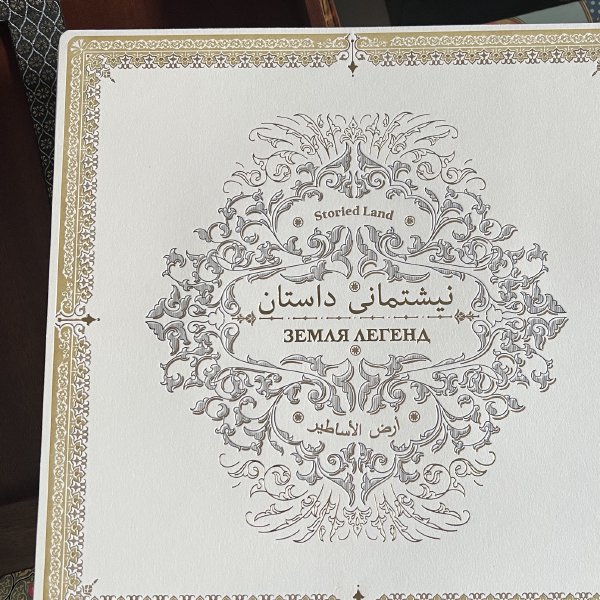 Storied Land
نیشتمانی داستان
ЗЕМЛЯ ЛЕГЕНД
أرض الأساطير